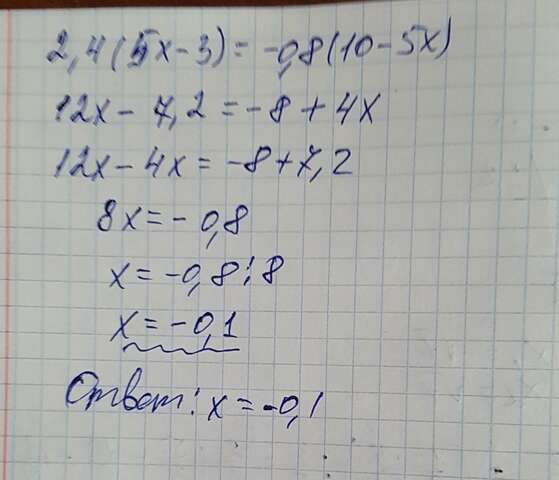 2,4(5x-3)=-0,8(10-5x)
12x-7,2=-8+4x
12x-4x=-8+7,2
8x=-0,8
x=-0,8:8
x=-0,1
Ответ: x=-0,1